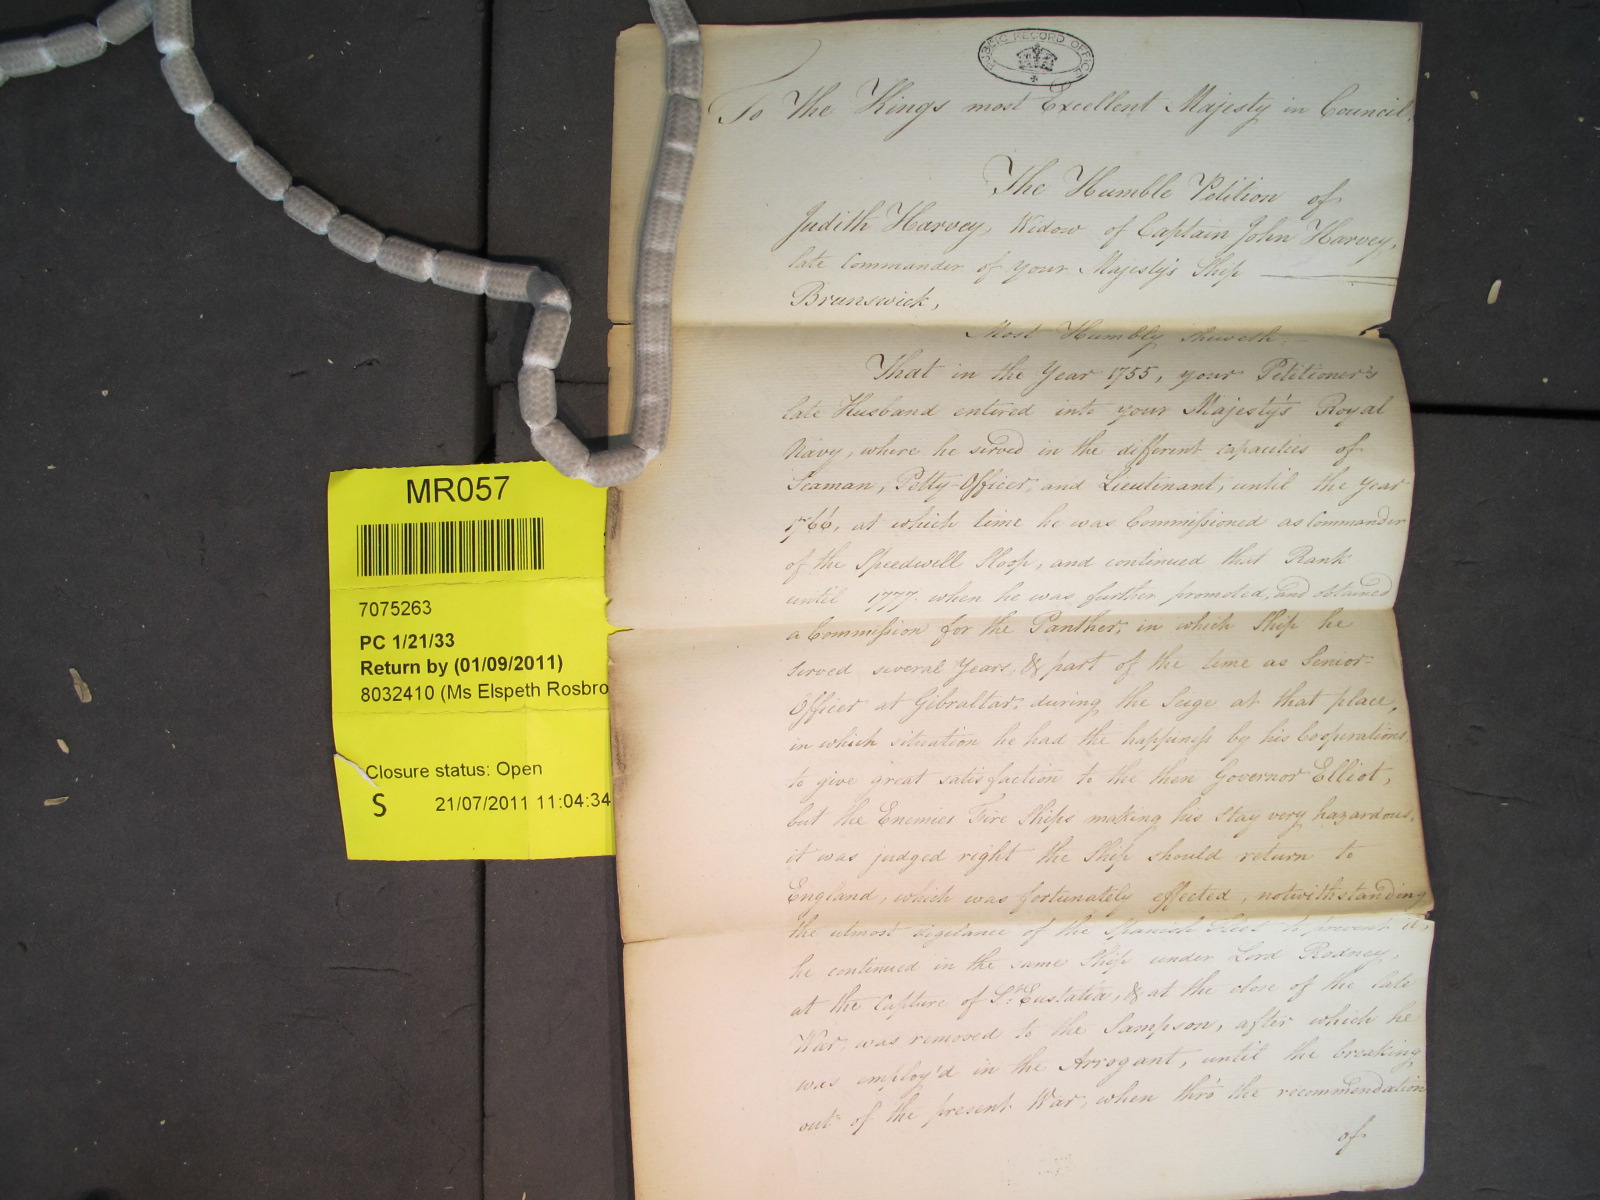 PUBLIC RECORD OFFICE
To The Kings most Excellent Majesty in Council,
The Humble Petition of
Judith Harvey, Widow of Captain John Harvey,
late Commander of your Majesty's Ship
Brunswick,
Most Humbly sheweth.
That in the Year 1755, your Petitioner's
late Husband entered into your Majesty's Royal
Navy, where he served in the different capacities of
Seaman, Petty-Officer, and Lieutenant, until the year
1766, at which time he was Commissioned as Commander
of the Speedwell Sloop, and continued that Rank
until 1777. when he was further promoted, and obtained
a Commission for the Panther, in which Ship he
served several Years, & part of the time as Senior-
Officer at Gibraltar, during the Seige at that place,
in which situation he had the happiness by his Cooperations
to give great satisfaction to the then Governor Elliot,
but the Enemies Fire Ships making his stay very hazardous,
it was judged right the Ship should return to
England, which was fortunately effected, notwithstanding
the utmost vigilance of the Spanish Fleet to prevent it,
he continued in the same Ship under Lord Rodney,
at the Capture of St. Eustatia, & at the close of the late
War, was removed to the Sampson, after which he
was employ'd in the Arrogant, until the breaking
out of the present War, when thro' the recommendation
of
MR057
7075263
PC 1/21/33
Return by (01/09/2011)
8032410 (Ms Elspeth Rosbro
Closure status: Open
S 21/07/2011 11:04:34